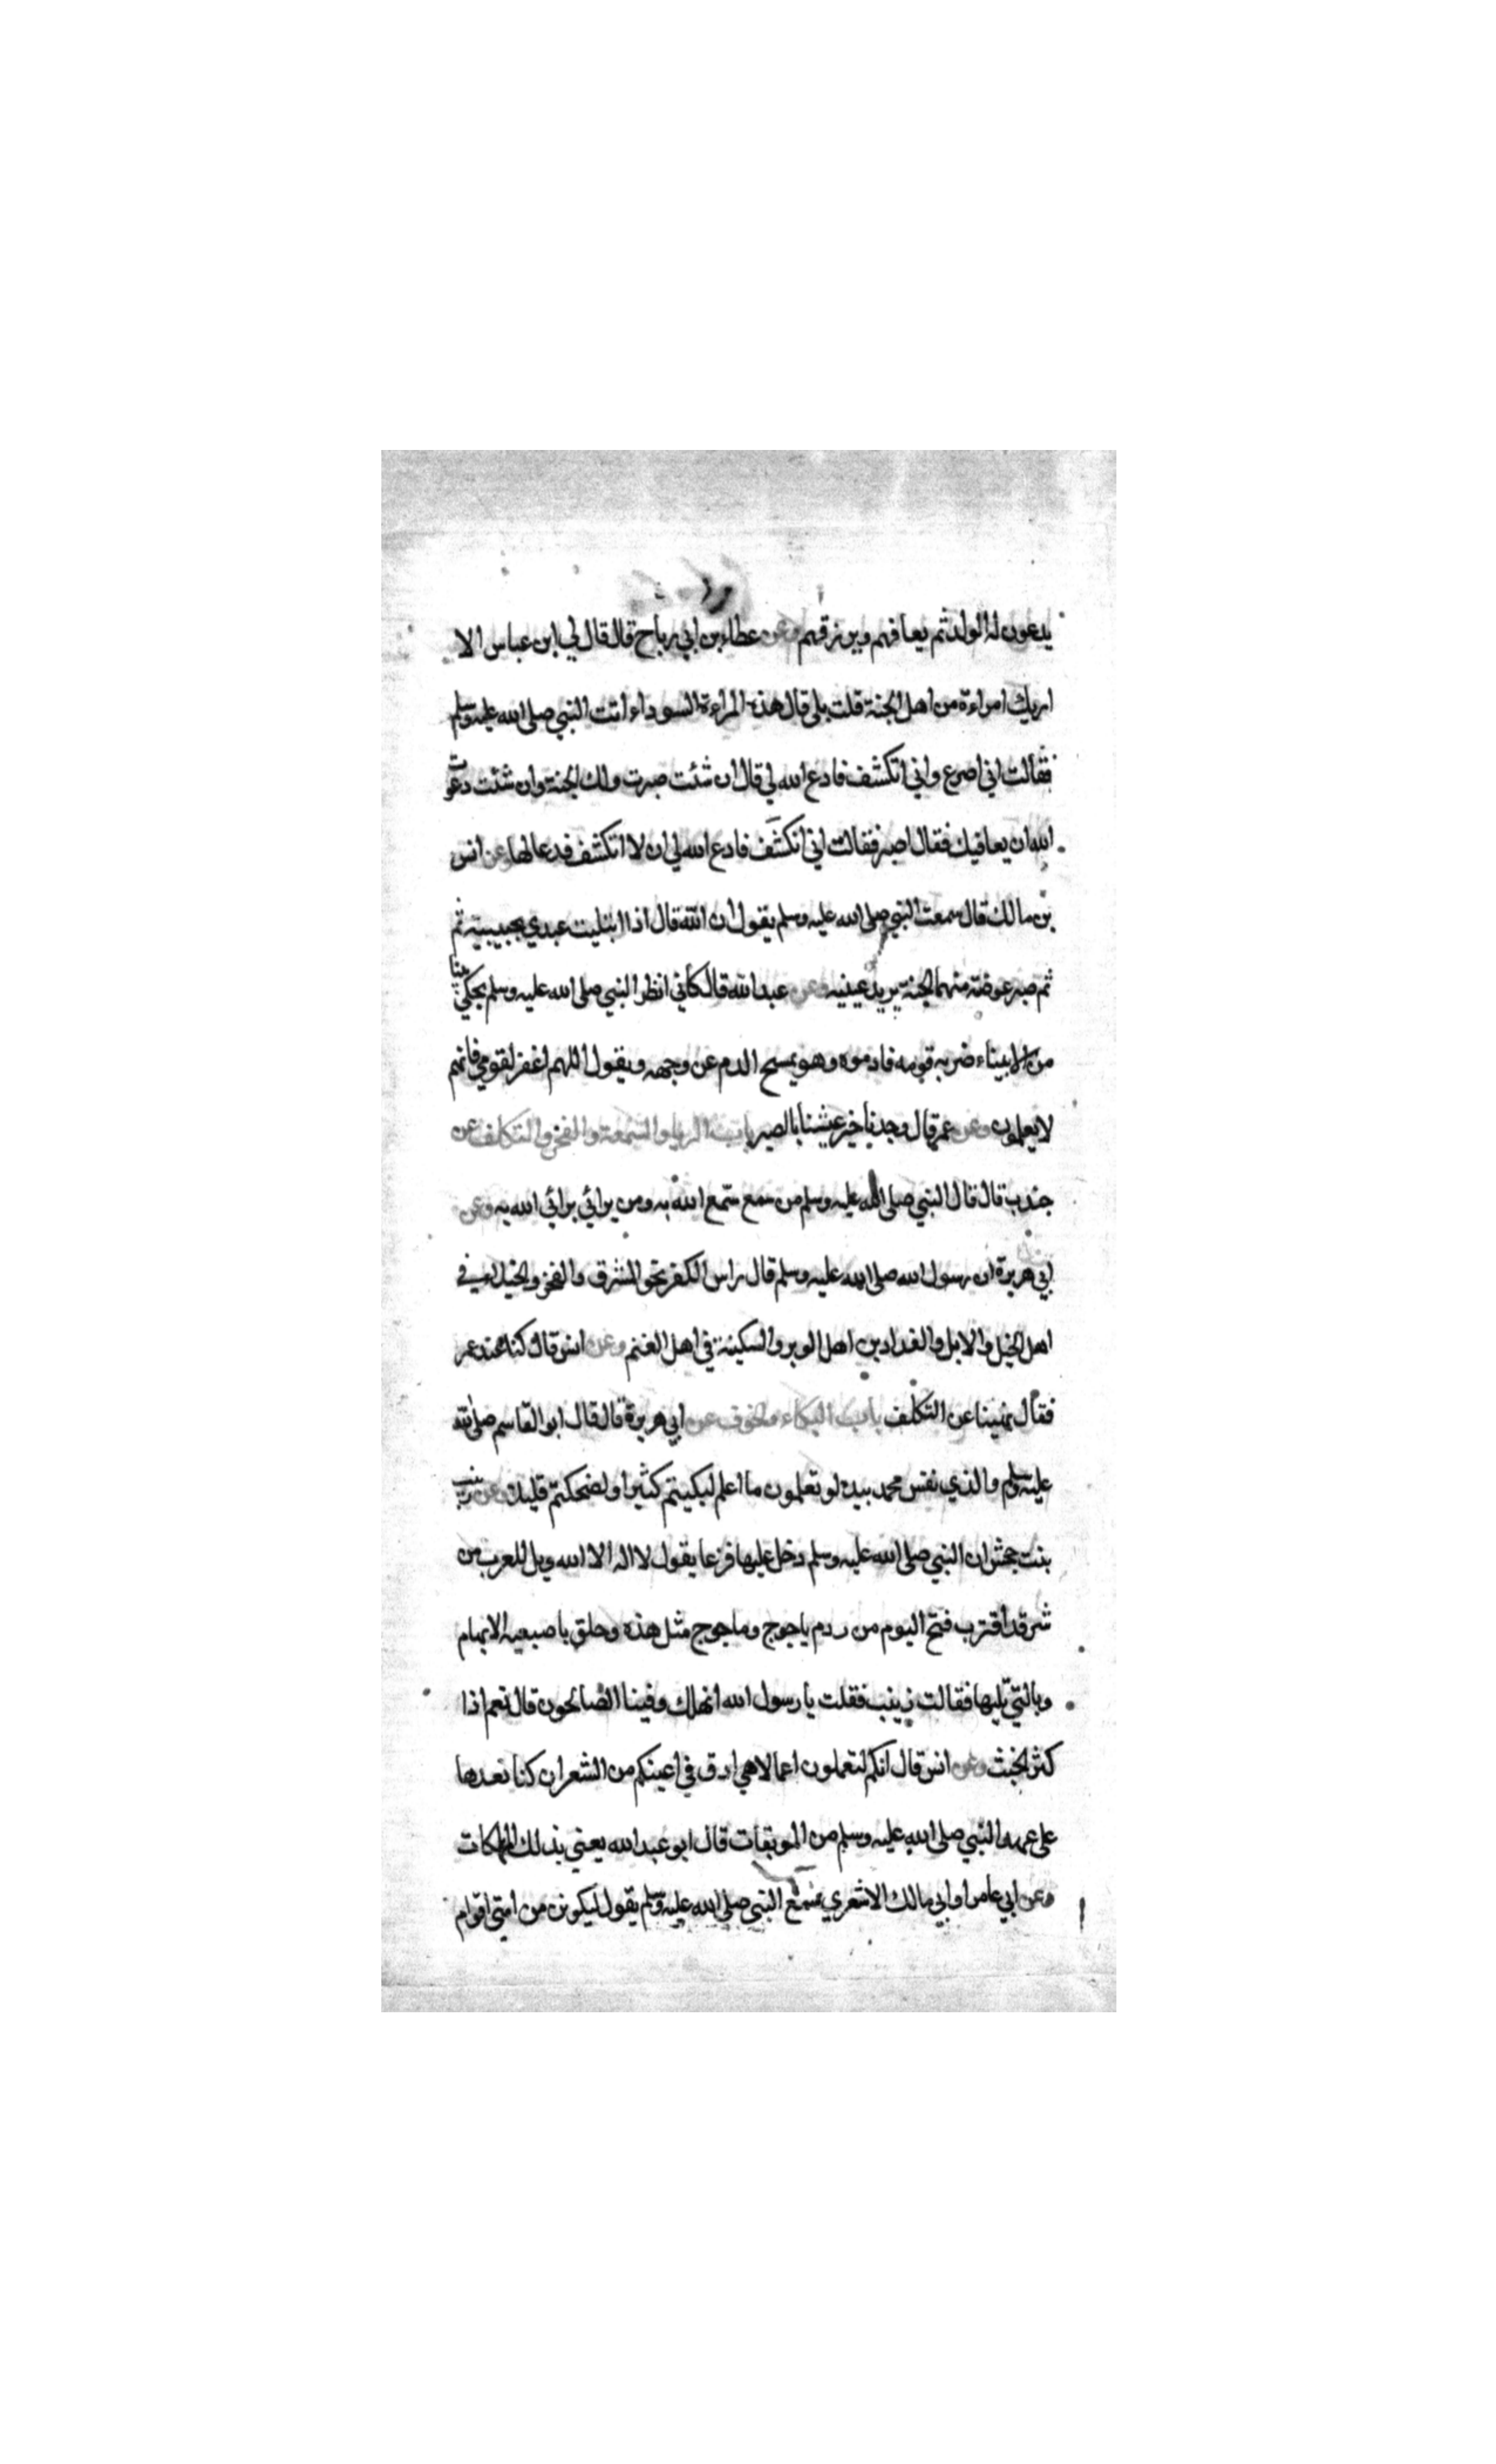 يدعون له الولد ثم يعافهم ويرزقهم وعن عطاء بن ابي رباح قال قال لي ابن عباس الا
اريك امراءة من اهل الجنة قلت بلى قال هذه المراءة السوداء اتت النبي صلى الله عليه وسلم
فقالت اني اصرع واني اتكشف فادع الله لي قال ان شئت صبرت ولك الجنة وان شئت دعوت
الله ان يعافيك فقال اصبر فقالت اني اتكشف فادع الله لي ان لا اتكشف فدعا لها وعن انس
بن مالك قال سمعت النبي صلى الله عليه وسلم يقول ان الله قال اذا ابتليت عبدي بحبيبيته ثم
ثم صبر عوضته منهما الجنة يريد عينيه وعن عبد الله قال كاني انظر النبي صلى الله عليه وسلم يحكي نبيا
من الانبياء ضربه قومه فادموه وهو يمسح الدم عن وجهه ويقول اللهم اغفر لقومي فانهم
لا يعلمون وعن عمر قال وجدنا خير عيشنا بالصبر باب الريا والسمعة والفخر والتكلف عن
جندب قال قال النبي صلى الله عليه وسلم من سمع سمع الله به ومن يرائي يرائي الله به وعن
ابي هريرة ان رسول الله صلى الله عليه وسلم قال راس الكفر نحو المشرق والفخر والخيلاء في
اهل الخيل والابل والفدادين اهل الوبر والسكينة في اهل الغنم وعن انس قال كنا عند عمر
فقال نهينا عن التكلف باب البكاء والخوف عن ابي هريرة قال قال ابو القاسم صلى الله
عليه وسلم والذي نفس محمد بيده لو تعلمون ما اعلم لبكيتم كثيرا ولضحكتم قليلا وعن زينب
بنت جحش ان النبي صلى الله عليه وسلم دخل عليها فزعا يقول لا اله الا الله ويل للعرب من
شر قد اقترب فتح اليوم من ردم ياجوج وماجوج مثل هذه وحلق باصبعيه الابهام
وبالتي تليها فقالت زينب فقلت يا رسول الله انهلك وفينا الصالحون قال نعم اذا
كثر الخبث وعن انس قال انكم لتعملون اعمالا هي ادق في اعينكم من الشعر ان كنا نعدها
على عهد النبي صلى الله عليه وسلم من الموبقات قال ابو عبد الله يعني بذلك المهلكات
وعن ابي عامر او ابي مالك الاشعري سمع النبي صلى الله عليه وسلم يقول ليكونن من امتي اقوام